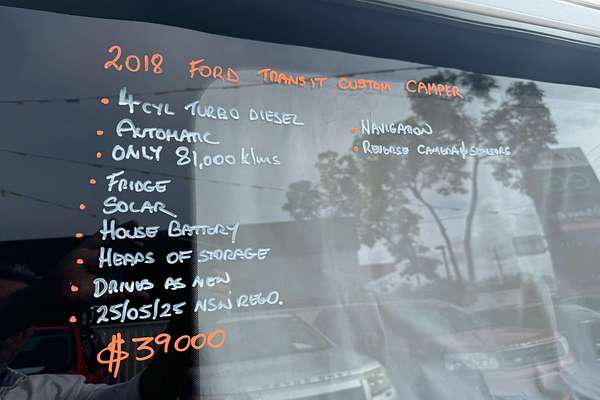 2018 FORD TRANSIT CUSTOM CAMPER
• 4 CYL TURBO DIESEL
• AUTOMATIC
• ONLY 81,000 klms
• FRIDGE
• SOLAR
• HOUSE BATTERY
• HEAPS OF STORAGE
• DRIVES AS NEW
• 25/05/25 NSW REGO.
$39000
• NAVIGATION
• REVERSE CAMERA & SENSORS